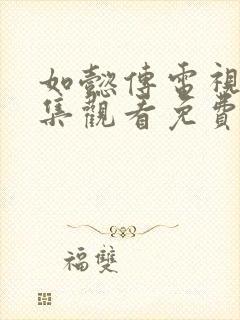 如懿傳電視
集觀看免費
福雙